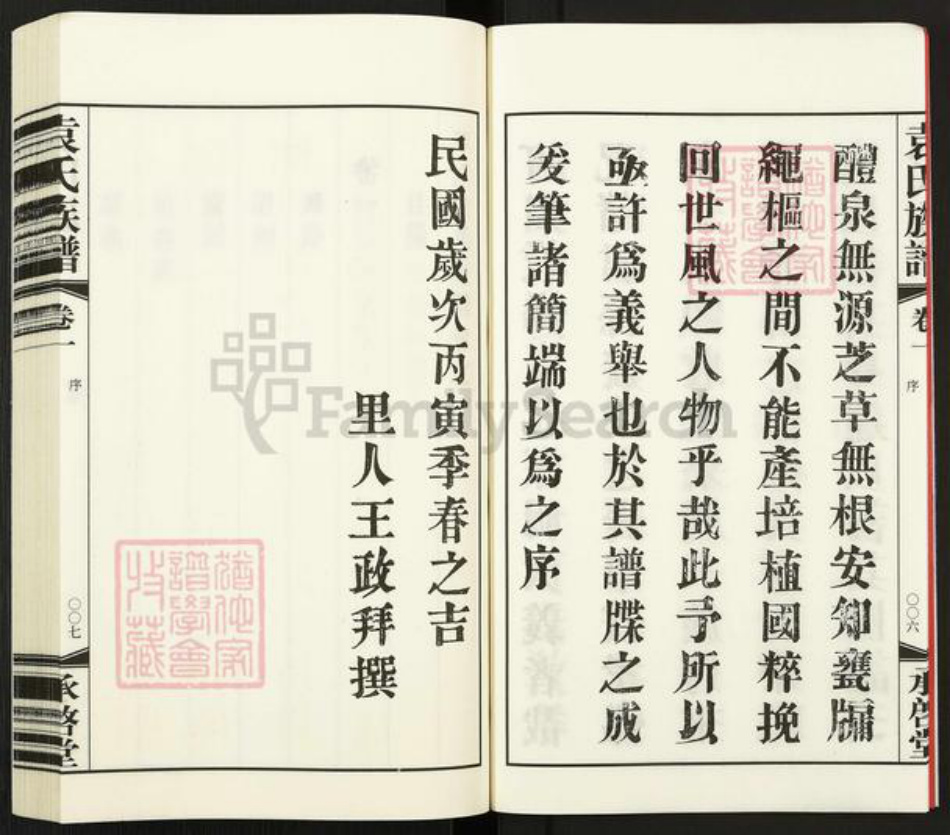 袁氏族譜
卷一
序
〇〇六
承啓堂
醴泉無源芝草無根安知甕牖
繩樞之間不能產培植國粹挽
回世風之人物乎哉此予所以
亟許爲義舉也於其譜牒之成
爰筆諸簡端以爲之序
民國歲次丙寅季春之吉
里人王政拜撰
袁氏族譜
卷一
序
〇〇七
承啓堂
FamilySearch